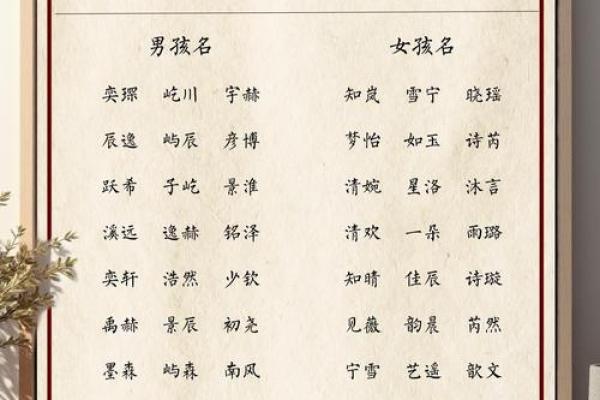 男孩名 女孩名
奕琛 屹川 宇赫 知岚 雪宁 晓瑶
辰逸 屿辰 彦博 梦怡 如玉 诗芮
跃希 子屹 景淮 清婉 星洛 沐言
溪远 逸赫 铭泽 清欢 一朵 雨璐
奕轩 浩然 少钦 知晴 佳辰 诗璇
禹赫 景辰 初尧 见薇 韵晨 芮然
墨森 屿森 南风 宁雪 艺遥 歆文